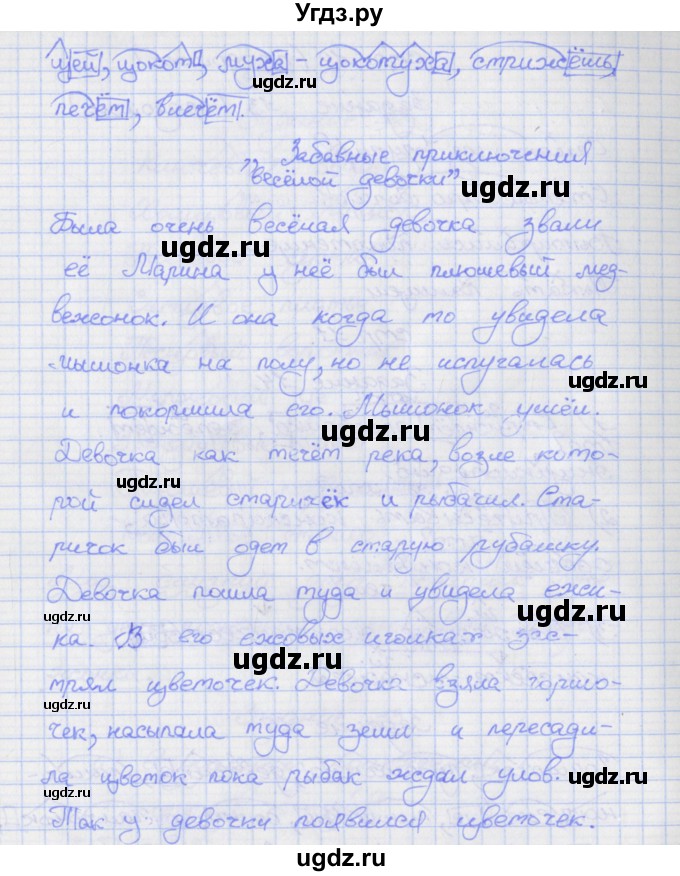 Угдз.ру
щей, щокот, муха - щокотуха, стрижёшь,
ugdz.ru
печёт, влечёт.
,, Забавные приключения
весёлой девочки"
ugdz.ru
Была очень весёлая девочка звали
ugdz.ru
её Марина у неё был плюшевый мед-
вежонок. И она когда то увидела
мышонка на полу, но не испугалась
ugdz.ru
и покормила его. Мышонок ушёл.
ugdz.ru
Девочка как течёт река, возле кото-
ugdz.ru
рой сидел старичёк и рыбачил. Ста-
ричок был одет в старую рубашку.
Девочка пошла туда и увидела ежи-
ugdz.ru
ugdz.ru
ка. В его ежовых иголках зас-
ugdz.ru
трял цветочек. Девочка взяла горшо-
чек, насыпала туда земли и пересади-
ла цветок пока рыбак ждал улов.
ugdz.ru
ugdz.ru
Так у девочки появился цветочек.
ugdz.ru